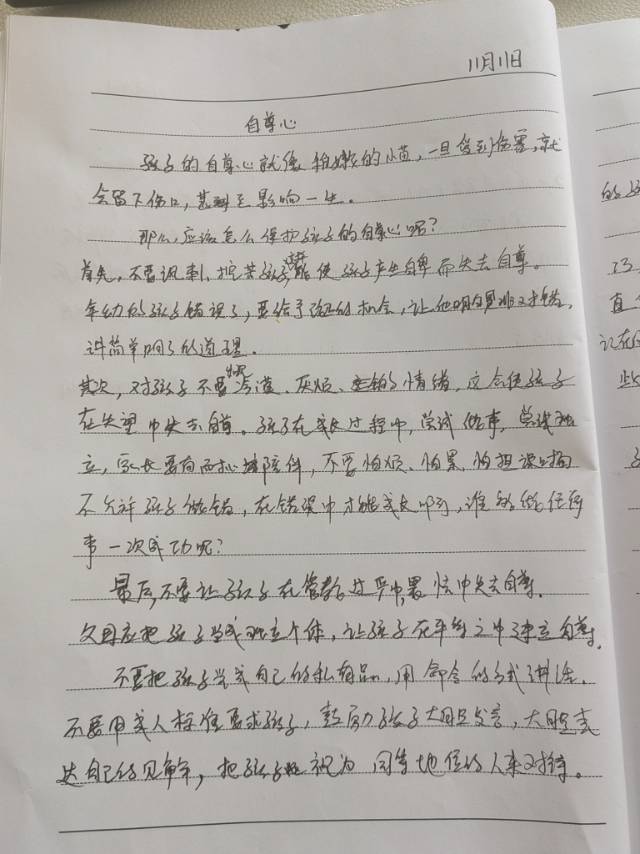 11月11日
自尊心
孩子的自尊心就像稚嫩的小苗,一旦受到伤害,就
会留下伤口,甚到至影响一生。
那么,应该怎么保护孩子的自尊心呢?
首先,不要讽刺、挖苦孩子,使孩子产生自卑而失去自尊。
年幼的孩子错误了,要给予改正的机会,让他明白是非对错,
讲简单明了的道理。
其次,对孩子不要冷漠、厌烦、的情绪,这会使孩子
在失望中失去自尊。孩子在成长过程中,尝试做事,尝试独
立,家长要有耐心地陪伴,不要怕烦、怕累、怕担误时间
不允许孩子做错,在错误中才能成长吗,谁都能任何
事一次成功呢?
最后,不要让孩子在管教过严中,失去自尊。
父母应把孩子当成独立个体,让孩子在平等之中建立自尊。
不要把孩子当成自己的私有品,用命令的方式讲话。
不要用成人标准要求孩子,鼓励孩子大胆发言,大胆表
达自己的见解,把孩子视为同等地位的人来对待。
的
巧
直
记在
些